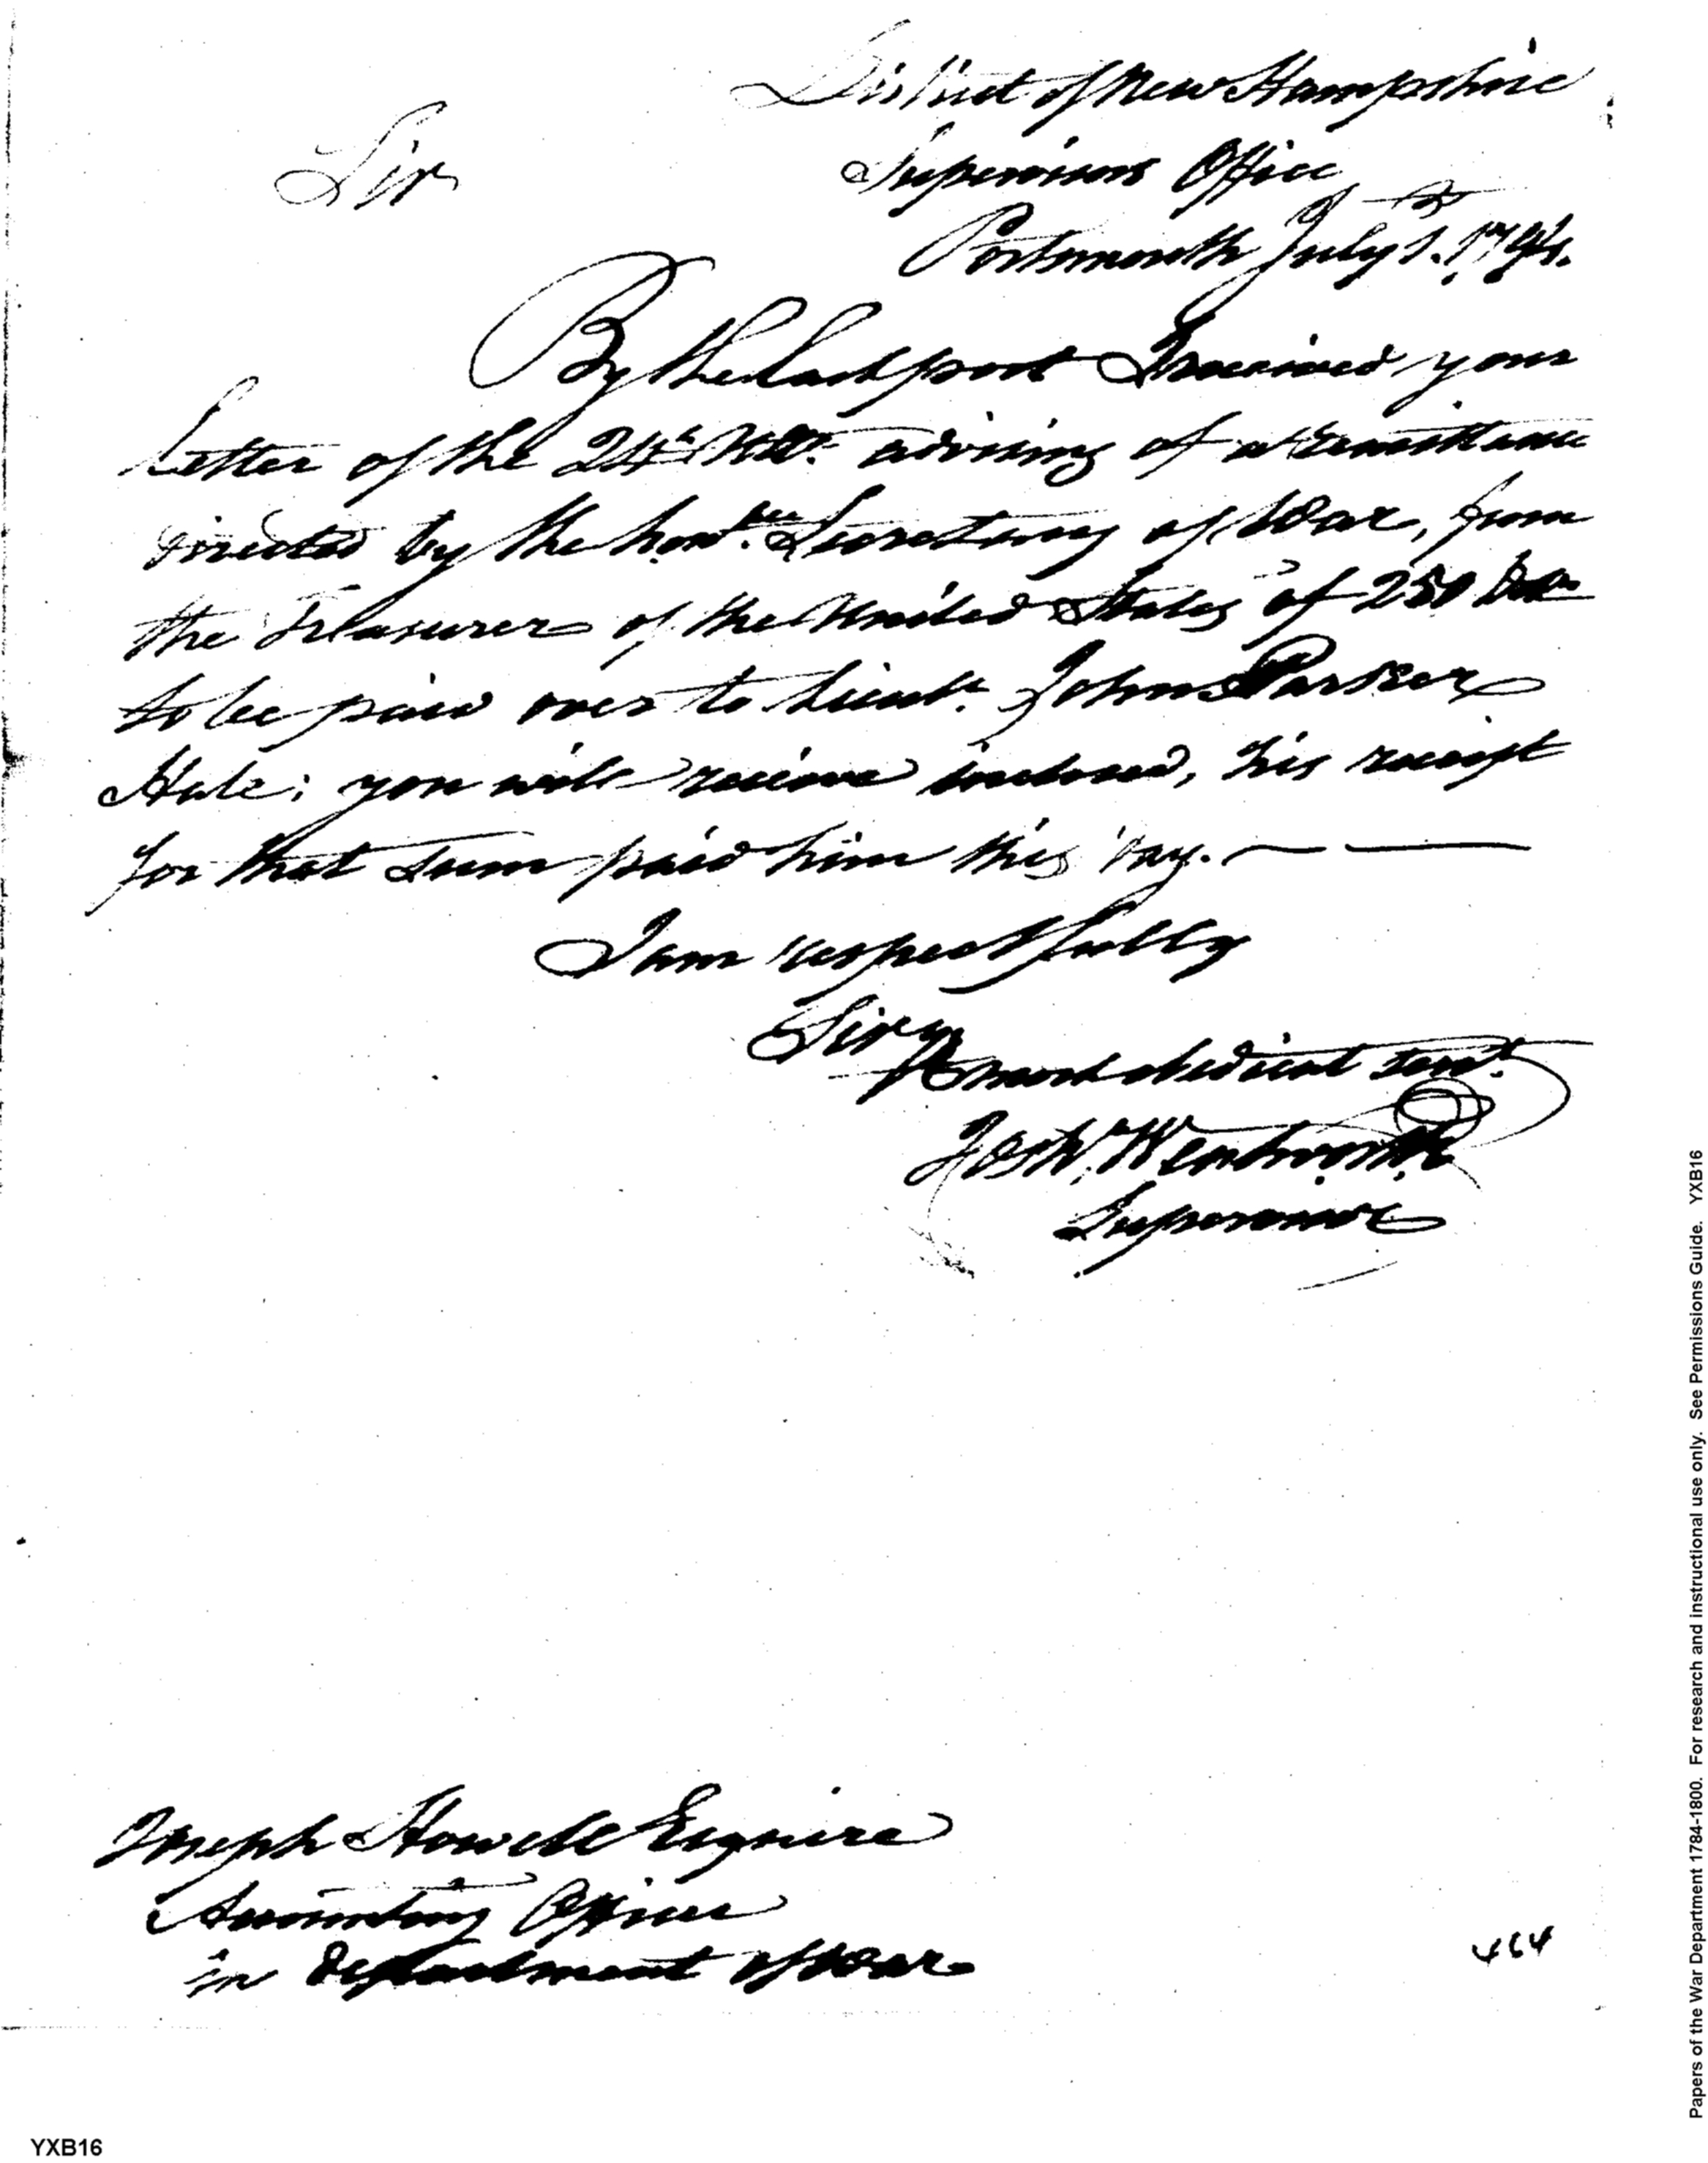 District of New Hampshire
Sir
Supervisors Office
Portsmouth July 1. 1794.
By the last post I received your
Letter of the 24th Ulto. advising of a remittance
directed by the honble. Secretary of War, from
the Treasurer of the United States of 250 Dolls
to be paid over to Lieut. John Parker
Hale; you will receive inclosed, his receipt
for that sum paid him this day.
I am respectfully
Sir yr
most obedient servt.
Josh. Wentworth
Supervisor
Joseph Howell Esquire
Accounting Officer
in department of War
464
YXB16
Papers of the War Department 1784-1800. For research and instructional use only. See Permissions Guide. YXB16